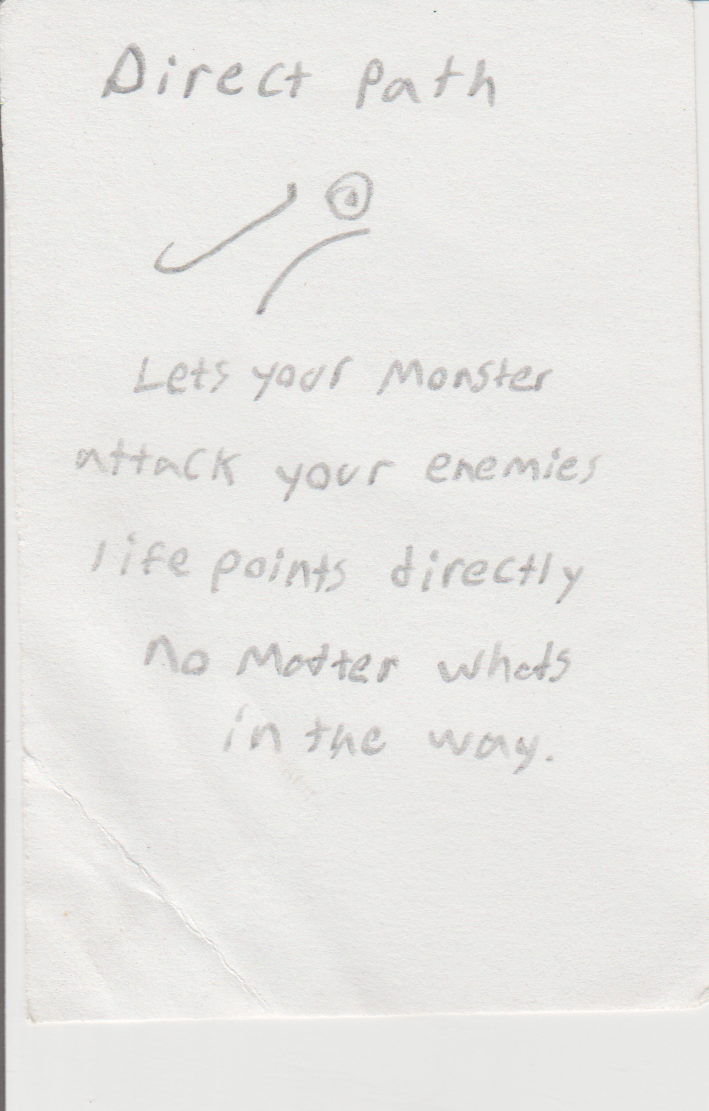 Direct Path
Lets your Monster
attack your enemies
life points directly
no Matter whats
in the way.